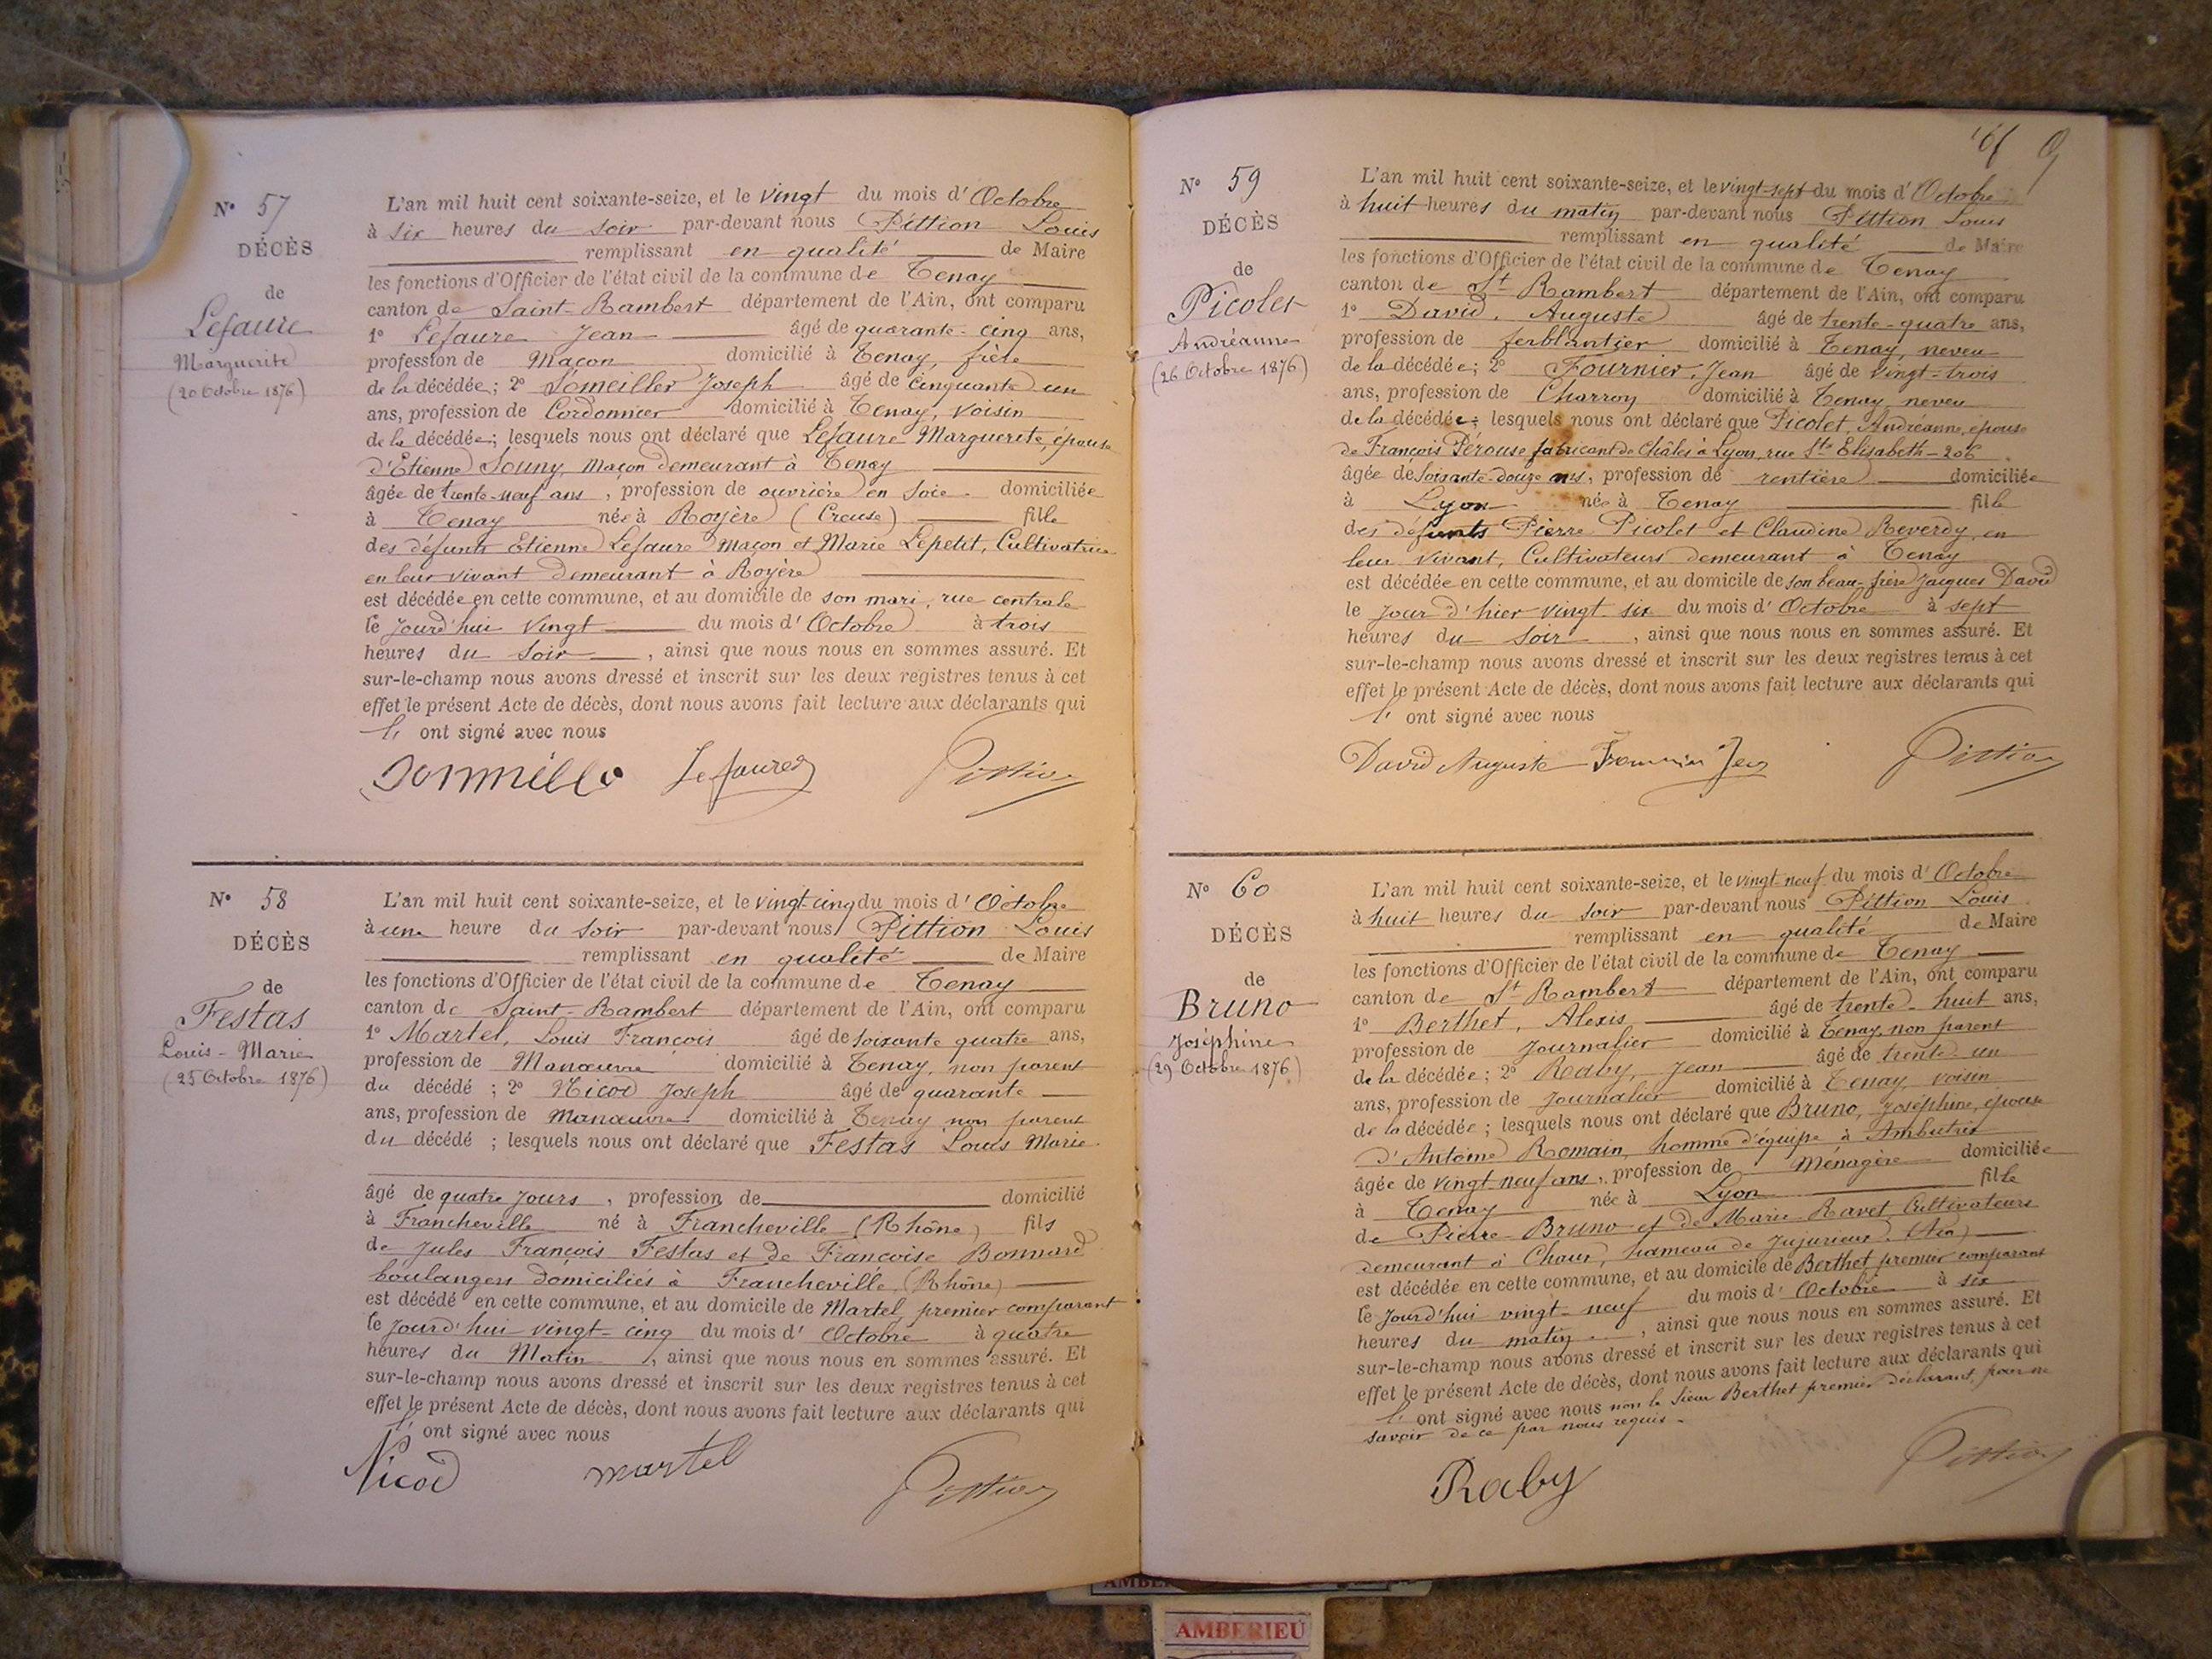 N° 57
DÉCÈS
de
Lefaure
Marguerite
(20 Octobre 1876)
L'an mil huit cent soixante-seize, et le vingt du mois d'Octobre
à six heures du soir par-devant nous Pittion Louis
remplissant en qualité de Maire
les fonctions d'Officier de l'état civil de la commune de Tenay
canton de Saint-Rambert département de l'Ain, ont comparu
1° Lefaure Jean âgé de quarante-cinq ans,
profession de Maçon domicilié à Tenay, frère
de la décédée; 2° Someiller Joseph âgé de cinquante un
ans, profession de Cordonnier domicilié à Tenay, voisin
de la décédée; lesquels nous ont déclaré que Lefaure Marguerite, épouse
d'Etienne Souny, Maçon demeurant à Tenay
âgée de trente-neuf ans, profession de ouvrière en soie domiciliée
à Tenay née à Royère (Creuse) fille
des défunts Etienne Lefaure Maçon et Marie Lepetit, Cultivatrice
en leur vivant demeurant à Royère
est décédée en cette commune, et au domicile de son mari, rue centrale
le jourd'hui vingt du mois d'Octobre à trois
heures du soir, ainsi que nous nous en sommes assuré. Et
sur-le-champ nous avons dressé et inscrit sur les deux registres tenus à cet
effet le présent Acte de décès, dont nous avons fait lecture aux déclarants qui
l' ont signé avec nous
Lefaure Pittion
N° 58
DÉCÈS
de
Festas
Louis-Marie
(25 Octobre 1876)
L'an mil huit cent soixante-seize, et le vingt-cinq du mois d'Octobre
à une heure du soir par-devant nous Pittion Louis
remplissant en qualité de Maire
les fonctions d'Officier de l'état civil de la commune de Tenay
canton de Saint-Rambert département de l'Ain, ont comparu
1° Martel, Louis François âgé de soixante quatre ans,
profession de Manœuvre domicilié à Tenay, non parent
du décédé ; 2° Nicod Joseph âgé de quarante
ans, profession de Manœuvre domicilié à Tenay non parent
du décédé ; lesquels nous ont déclaré que Festas Louis Marie
âgé de quatre jours, profession de domicilié
à Francheville né à Francheville (Rhône) fils
de Jules François Festas et de Françoise Bonnard
boulangers domiciliés à Francheville (Rhône)
est décédé en cette commune, et au domicile de Martel, premier comparant
le jourd'hui vingt-cinq du mois d'Octobre à quatre
heures du Matin, ainsi que nous nous en sommes assuré. Et
sur-le-champ nous avons dressé et inscrit sur les deux registres tenus à cet
effet le présent Acte de décès, dont nous avons fait lecture aux déclarants qui
l' ont signé avec nous
Nicod martel Pittion
N° 59
DÉCÈS
de
Picolet
Andréanne
(26 Octobre 1876)
L'an mil huit cent soixante-seize, et le vingt-sept du mois d'Octobre
à huit heures du matin par-devant nous Pittion Louis
remplissant en qualité de Maire
les fonctions d'Officier de l'état civil de la commune de Tenay
canton de St Rambert département de l'Ain, ont comparu
1° David, Auguste âgé de trente-quatre ans,
profession de ferblantier domicilié à Tenay, neveu
de la décédée; 2° Fournier, Jean âgé de vingt-trois
ans, profession de Charron domicilié à Tenay neveu
de la décédée; lesquels nous ont déclaré que Picolet, Andréanne, épouse
de François Pérouse fabricant de Châles à Lyon, rue Ste Elisabeth-206
âgée de soixante-douze ans, profession de rentière domiciliée
à Lyon née à Tenay fille
des défunts Pierre Picolet et Claudine Reverdy, en
leur vivant, Cultivateurs demeurant à Tenay
est décédée en cette commune, et au domicile de son beau-frère Jacques David
le jour d'hier vingt six du mois d'Octobre à sept
heures du soir, ainsi que nous nous en sommes assuré. Et
sur-le-champ nous avons dressé et inscrit sur les deux registres tenus à cet
effet le présent Acte de décès, dont nous avons fait lecture aux déclarants qui
l' ont signé avec nous
David Auguste Fournier Jean Pittion
N° 60
DÉCÈS
de
Bruno
Joséphine
(29 Octobre 1876)
L'an mil huit cent soixante-seize, et le vingt-neuf du mois d'Octobre
à huit heures du soir par-devant nous Pittion Louis
remplissant en qualité de Maire
les fonctions d'Officier de l'état civil de la commune de Tenay
canton de St Rambert département de l'Ain, ont comparu
1° Berthet, Alexis âgé de trente-huit ans,
profession de Journalier domicilié à Tenay, non parent
de la décédée; 2° Raby, Jean âgé de trente-un
ans, profession de Journalier domicilié à Tenay, voisin
de la décédée; lesquels nous ont déclaré que Bruno, Joséphine, épouse
d'Antoine Romain, homme d'équipe à Ambutrix
âgée de vingt-neuf ans, profession de Ménagère domiciliée
à Tenay née à Lyon fille
de Pierre Bruno et de Marie Ravet Cultivateurs
demeurant à Chaux, hameau de Jujurieux (Ain)
est décédée en cette commune, et au domicile de Berthet premier comparant
le jourd'hui vingt-neuf du mois d'Octobre à six
heures du matin, ainsi que nous nous en sommes assuré. Et
sur-le-champ nous avons dressé et inscrit sur les deux registres tenus à cet
effet le présent Acte de décès, dont nous avons fait lecture aux déclarants qui
l' ont signé avec nous non le sieur Berthet premier déclarant, pour ne
savoir de ce par nous requis.
Raby Pittion
AMBERIEU